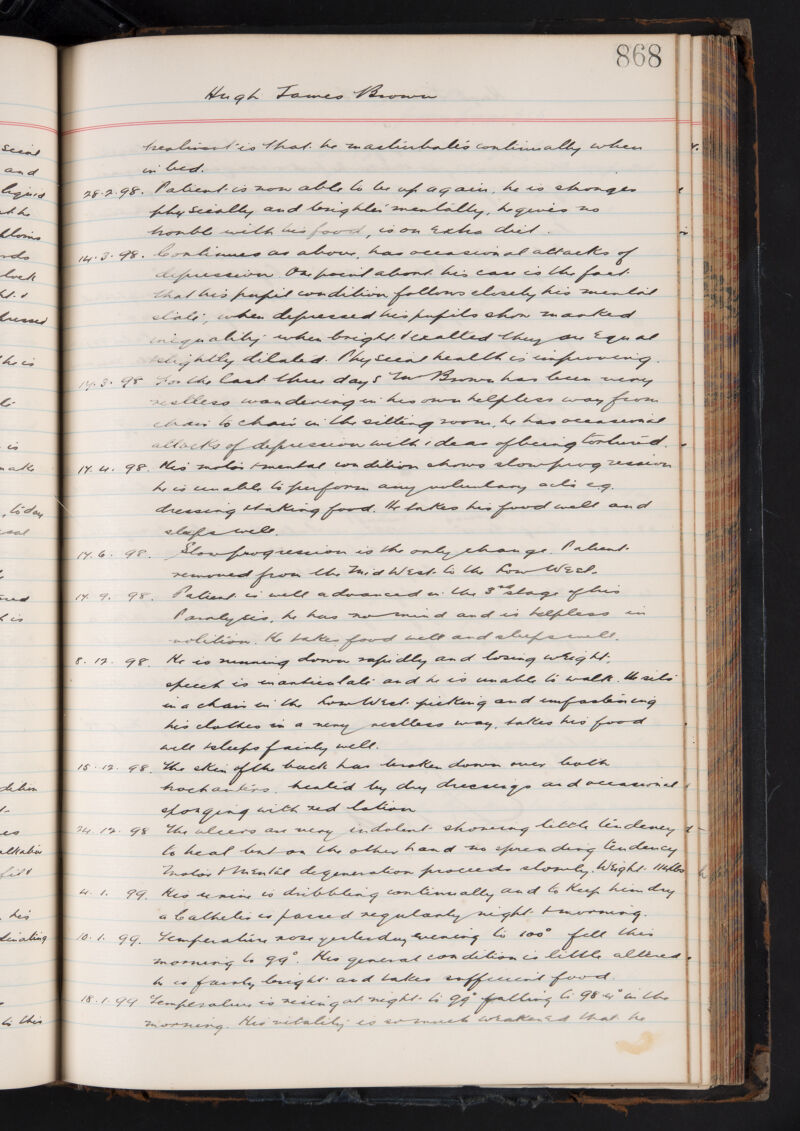 868
Hugh James Brown
treatment is that he masturbates continually when
in bed.
28.2.98. Patient is now able to be up again, he is stronger
physically and brighter mentally, he gives no
trouble with his food, is on Extra diet.
14.3.98. Continues as above, has occasional attacks of
depression. One point about his case is the fact
that his pupil condition follows closely his mental
state, when depressed his pupils show marked
inequality when bright & exalted they are Equal
& slightly dilated. Physical health is improving.
98 For the last three days Mr Brown has been very
restless wandering in his own helpless way from
chair to chair in the sitting room, he has occasional
attacks of depression with ideas of being tortured.
14.4.98. His motor & mental condition shows slow progression
he is unable to perform any voluntary acts eg.
dressing & taking food. He takes his food well and
sleeps well.
14.6.98. Slow progression is the only change. Patient
removed from the Mid West to the Low West.
14.9.98. Patient is well advanced in the 3rd stage of his
Paralysis, he has no mind and is helpless in
volition. He takes food well and sleeps well.
8.12.98. He is running down rapidly and losing weight,
speech is inarticulate and he is unable to walk. He sits
in a chair in the Low West picking and unfastening
his clothes in a very restless way, takes his food
well & sleeps fairly well.
15.12.98. The skin of the back has broken down over both
trochanters, treated by dry dressings and occasional
sponging with red lotion
24.12.98 The ulcers are very indolent showing little tendency
to heal but on the other hand no spreading tendency
Motor & Mental degeneration proceeds slowly. Weight
4.1.99. His urine is dribbling continually and to keep him dry
a Catheter is passed regularly night & morning.
10.1.99. Temperature rose yesterday evening to 100° fell this
morning to 99°. His general condition is little altered
he is fairly bright and takes sufficient food.
18.1.99 Temperature is rising at night to 99° falling to 98.4° in the
morning. His vitality is so much weakened that he